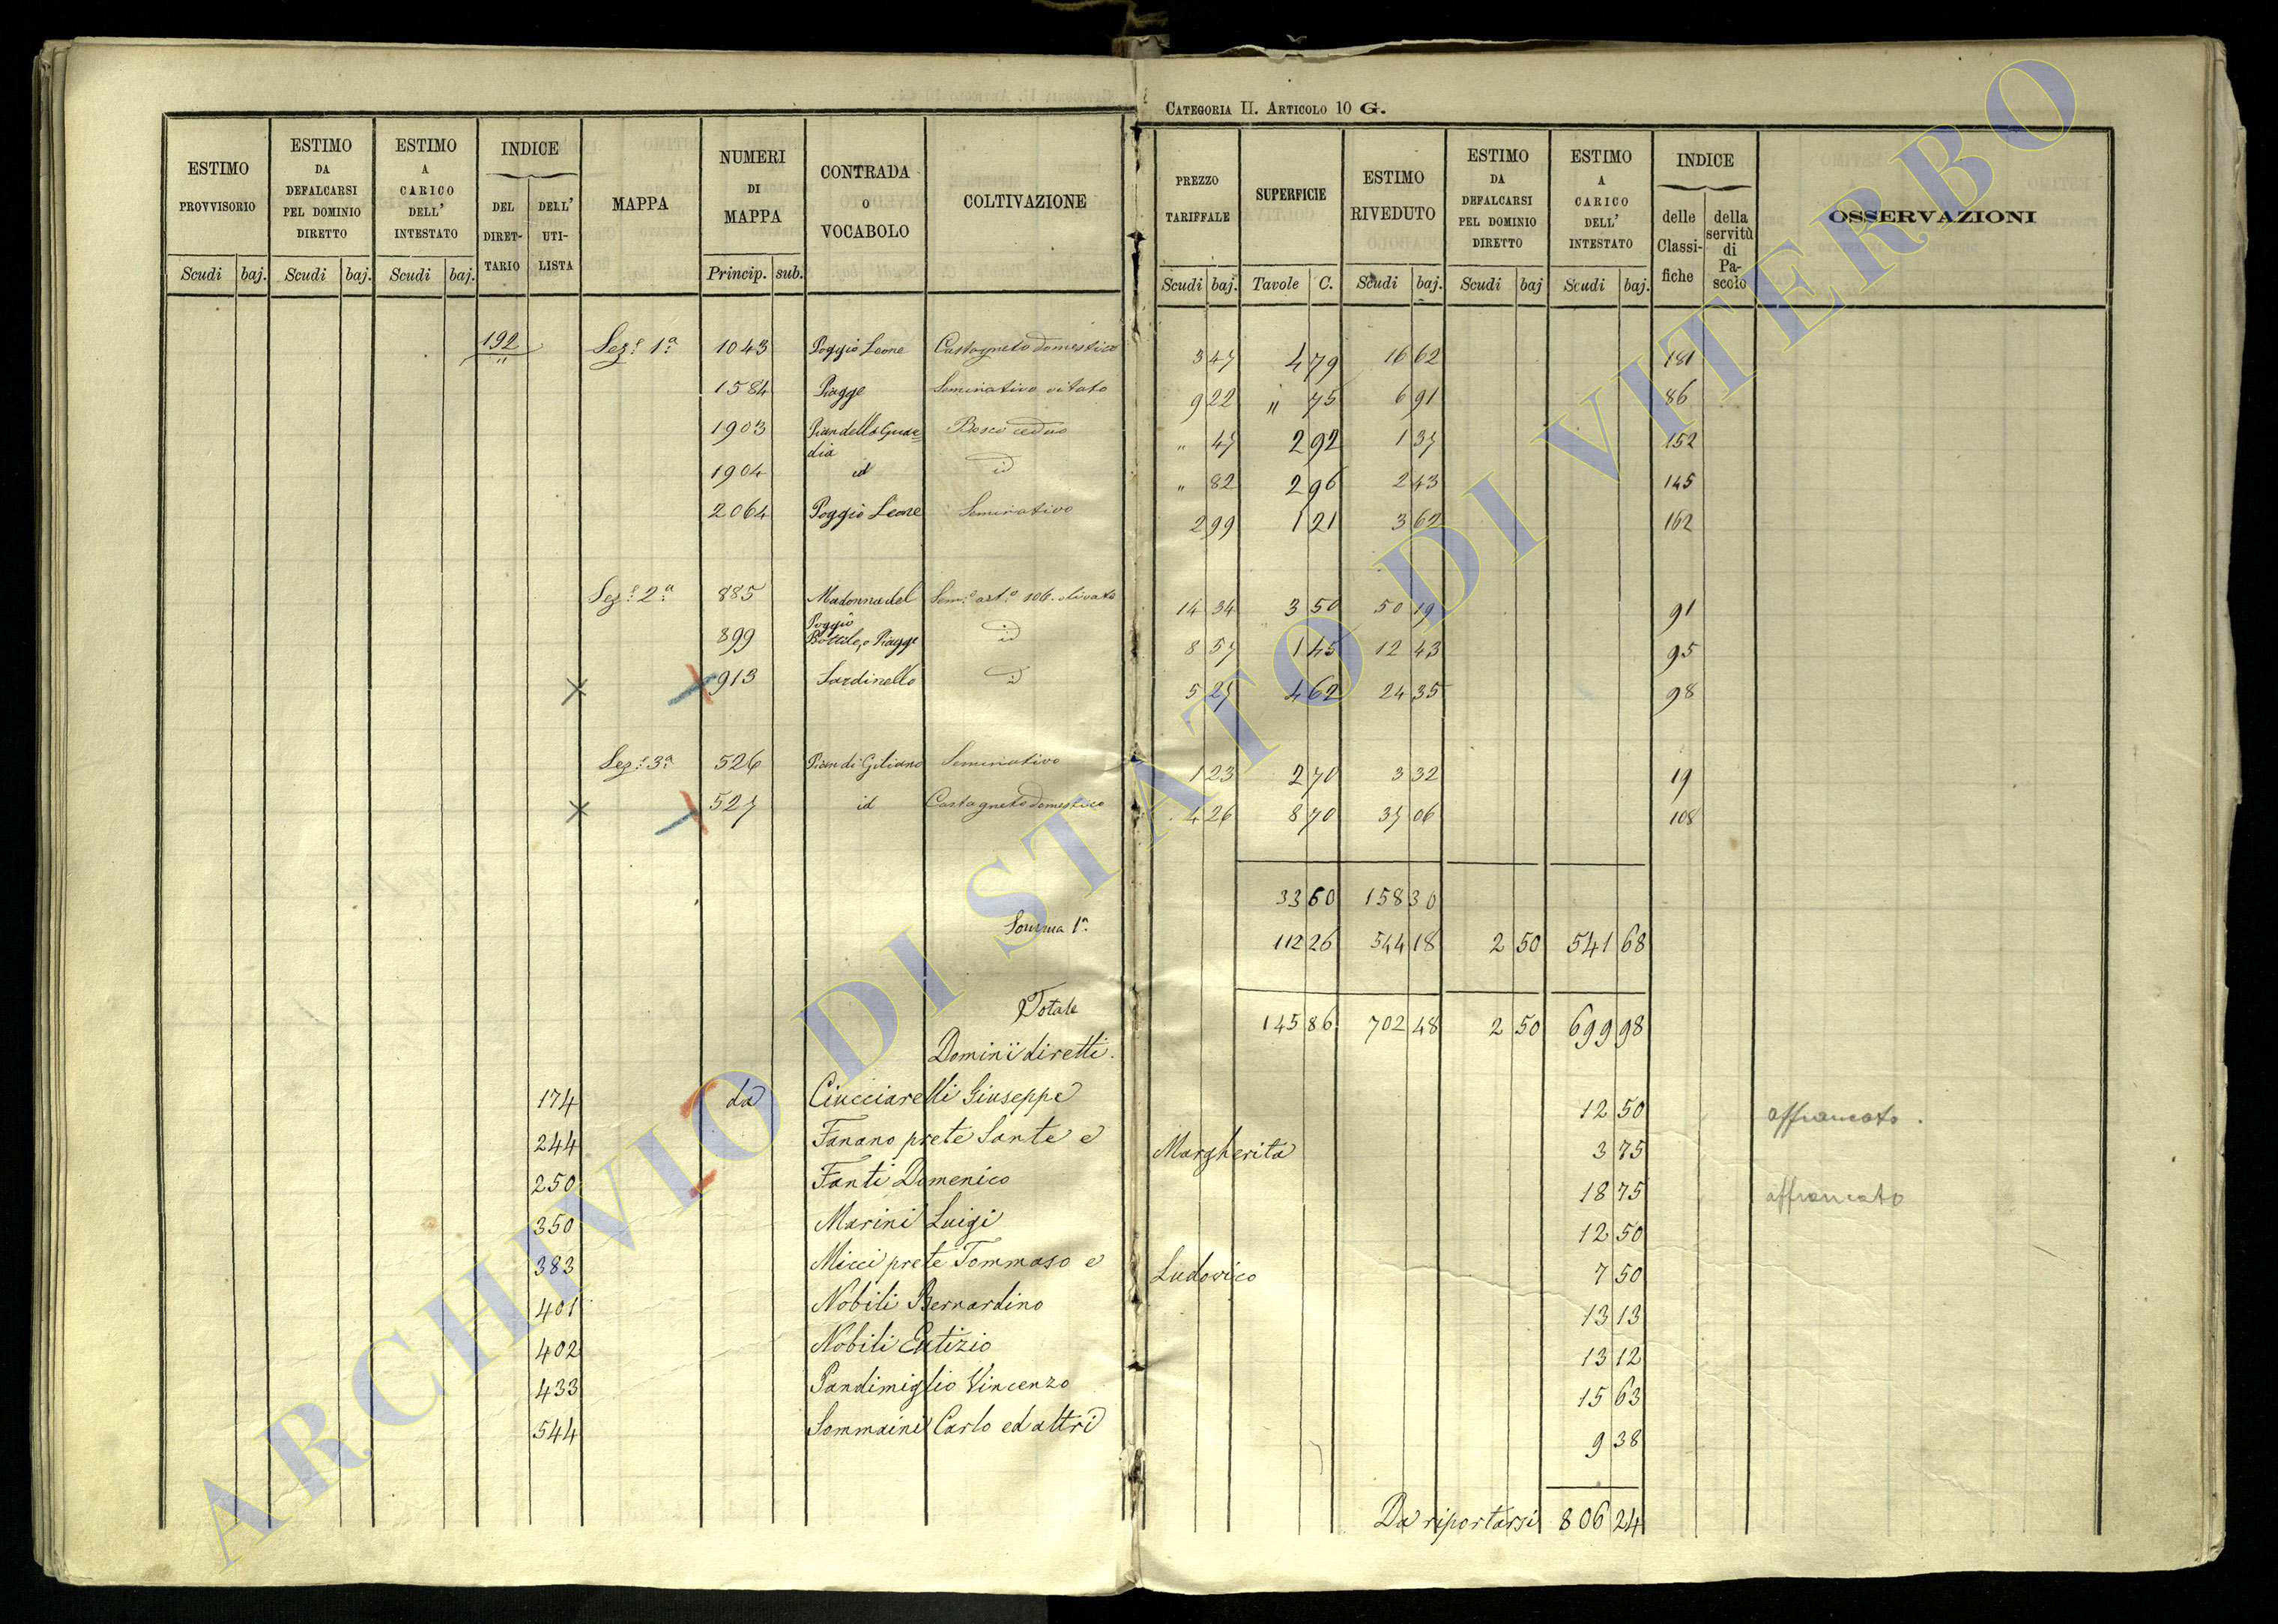 CATEGORIA II. ARTICOLO 10 G.
ESTIMO PROVVISORIO Scudi baj.
ESTIMO DA DEFALCARSI PEL DOMINIO DIRETTO Scudi baj.
ESTIMO A CARICO DELL' INTESTATO Scudi baj.
INDICE DEL DIRET-TARIO DELL' UTI-LISTA
MAPPA
NUMERI DI MAPPA Princip. sub.
CONTRADA O VOCABOLO
COLTIVAZIONE
PREZZO TARIFFALE Scudi baj.
SUPERFICIE Tavole C.
ESTIMO RIVEDUTO Scudi baj.
ESTIMO DA DEFALCARSI PEL DOMINIO DIRETTO Scudi baj
ESTIMO A CARICO DELL' INTESTATO Scudi baj.
INDICE delle Classi-fiche della servitù di Pa-scolo
OSSERVAZIONI
192 " Sez.e 1a 1043 Poggio Leone Castagneto domestico 3 47 4 79 16 62 181
1584 Piagge Seminativo vitato 9 22 " 75 6 91 86
1903 Pian della Guar=dia Bosco ceduo " 47 2 92 1 37 152
1904 id id " 82 2 96 2 43 145
2064 Poggio Leone Seminativo 2 99 1 21 3 62 162
Sez.e 2a 885 Madonna del Poggio Sem.o art.o 106. olivato 14 34 3 50 50 19 91
899 Piagge id 8 57 1 45 12 43 95
913 Sardinello id 5 27 4 62 24 35 98
Sez.e 3a 526 Pian di Giliano Seminativo 1 23 2 70 3 32 19
527 id Castagneto domestico 4 26 8 70 37 06 108
33 60 158 30
Somma 1a 112 26 544 18 2 50 541 68
Totale 145 86 702 48 2 50 699 98
Dominii diretti.
174 da Ciucciarelli Giuseppe 12 50 affrancato.
244 Fanano prete Sante e Margherita 3 75
250 Fanti Domenico 18 75 affrancato
350 Marini Luigi 12 50
383 Micci prete Tommaso e Ludovico 7 50
401 Nobili Bernardino 13 13
402 Nobili Eutizio 13 12
433 Pandimiglio Vincenzo 15 63
544 Sommaini Carlo ed altri 9 38
Da riportarsi 806 24
ARCHIVIO DI STATO DI VITERBO